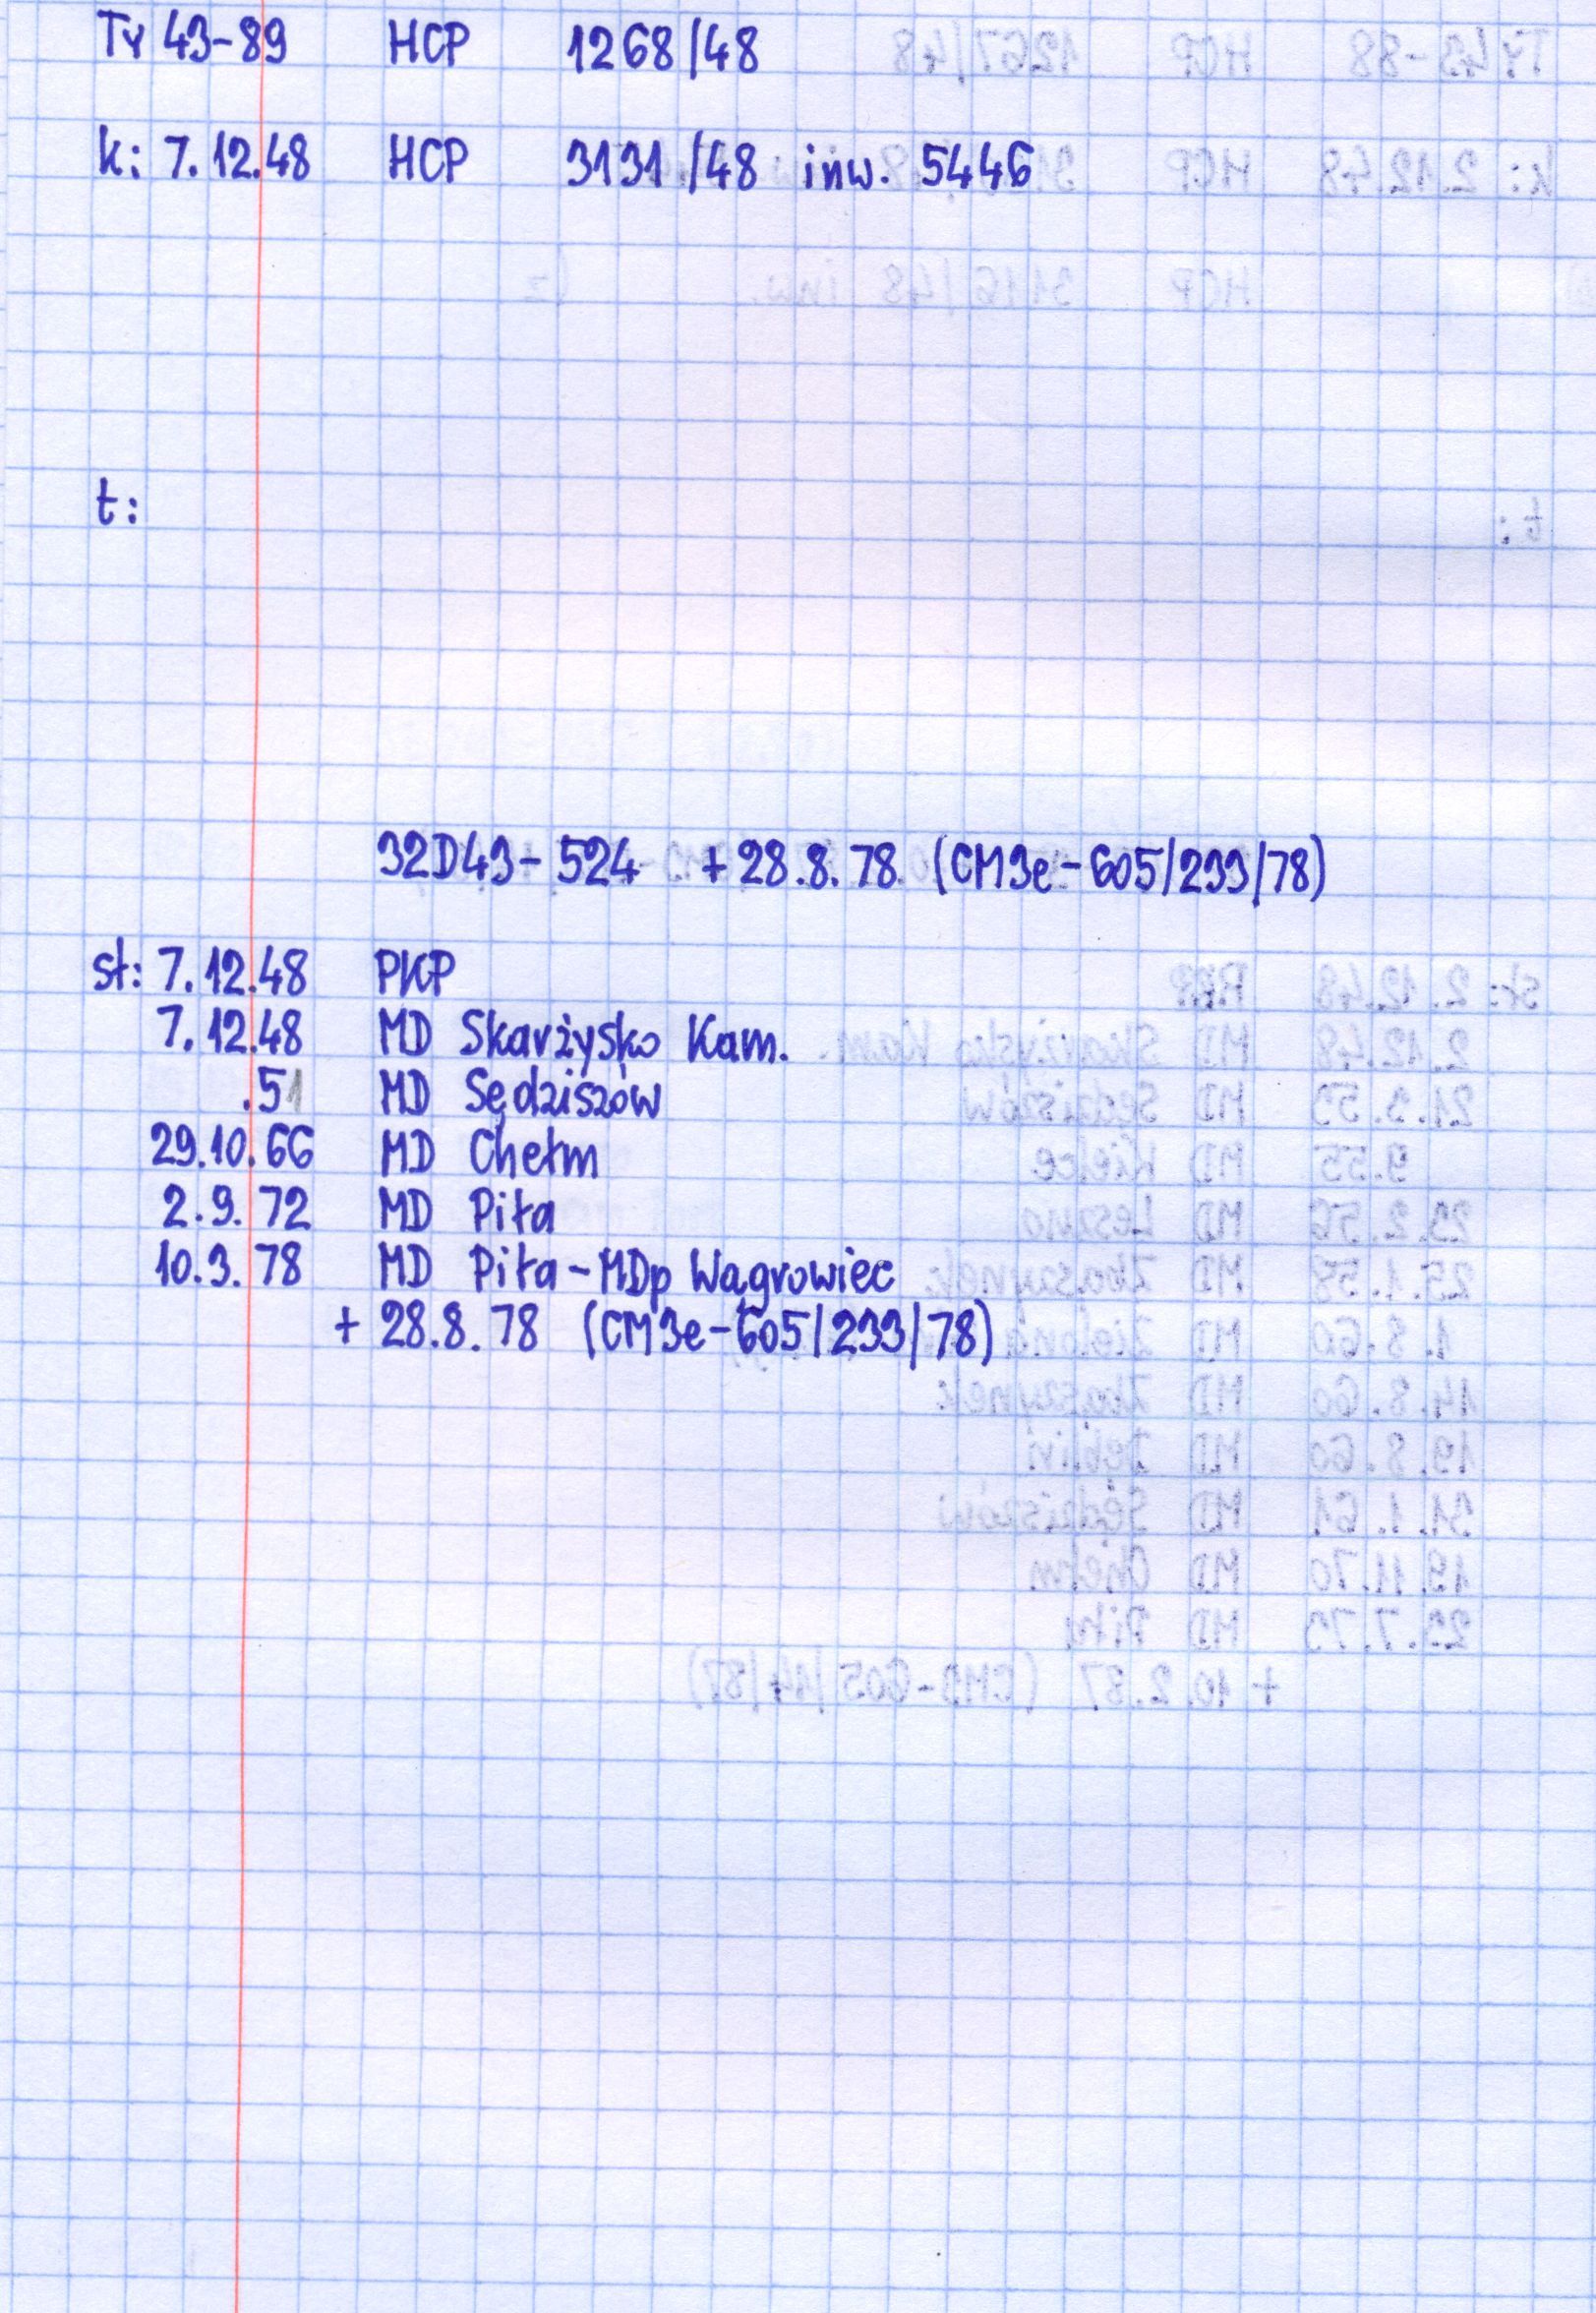 Ty 43-89 HCP 1268/48
k: 7.12.48 HCP 3131/48 inw. 5446
t:
32D43-524 + 28.8.78 (CM3e-605/233/78)
st: 7.12.48 PKP
7.12.48 MD Skarżysko Kam.
.51 MD Sędziszów
29.10.66 MD Chełm
2.9.72 MD Piła
10.3.78 MD Piła-MDp Wągrowiec
+ 28.8.78 (CM3e-605/233/78)